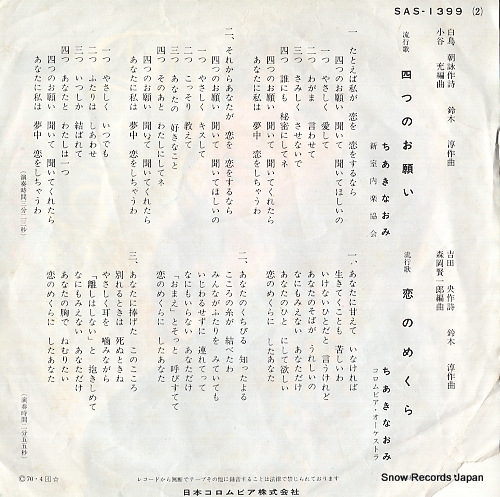 SAS-1399 (2)
白鳥 朝詠作詩 鈴木 淳作曲
小谷 充編曲
流行歌 四つのお願い
ちあきなおみ
新室内楽協会
一、たとえば私が 恋を 恋をするなら
四つのお願い 聞いて 聞いてほしいの
一つ やさしく 愛して
二つ わがまま 言わせて
三つ さみしく させないで
四つ 誰にも 秘密にしてネ
四つのお願い 聞いて 聞いてくれたら
あなたに私は 夢中 恋をしちゃうわ
二、それからあなたが 恋を 恋をするなら
四つのお願い 聞いて 聞いてほしいの
一つ やさしく キスして
二つ こっそり 教えて
三つ あなたの 好きなこと
四つ そのあと わたしにしてネ
四つのお願い 聞いて 聞いてくれたら
あなたに私は 夢中 恋をしちゃうわ
一つ やさしく いつでも
二つ ふたりは しあわせ
三つ いつしか 結ばれて
四つ あなたと わたしは一つ
四つのお願い 聞いて 聞いてくれたら
あなたに私は 夢中 恋をしちゃうわ
吉田 央作詩 鈴木 淳作曲
森岡賢一郎編曲
流行歌 恋のめくら
ちあきなおみ
コロムビア・オーケストラ
一、あなたに甘えて いなければ
生きてくことも 苦しいわ
いけないひとだと 言うけれど
あなたのそばが うれしいの
なにもみえない あなただけ
あなたのひと にして欲しい
恋のめくらに したあなた
二、あなたのくちびる 知ったよる
こころの糸が 結べたわ
みんながふたりを みていても
いじわるせずに 連れてって
なにもいらない あなただけ
「おまえ」とそっと 呼びすてて
恋のめくらに したあなた
三、あなたに捧げた このこころ
別れるときは 死ぬときね
やさしく耳を 噛みながら
「離しはしない」と 抱きしめて
なにもみえない あなただけ
あなたの胸で ねむりたい
恋のめくらに したあなた
(演奏時間二分五五秒)
Ⓒ70・4
レコードから無断でテープその他に録音することは法律で禁じられております
日本コロムビア株式会社
Snow Records Japan